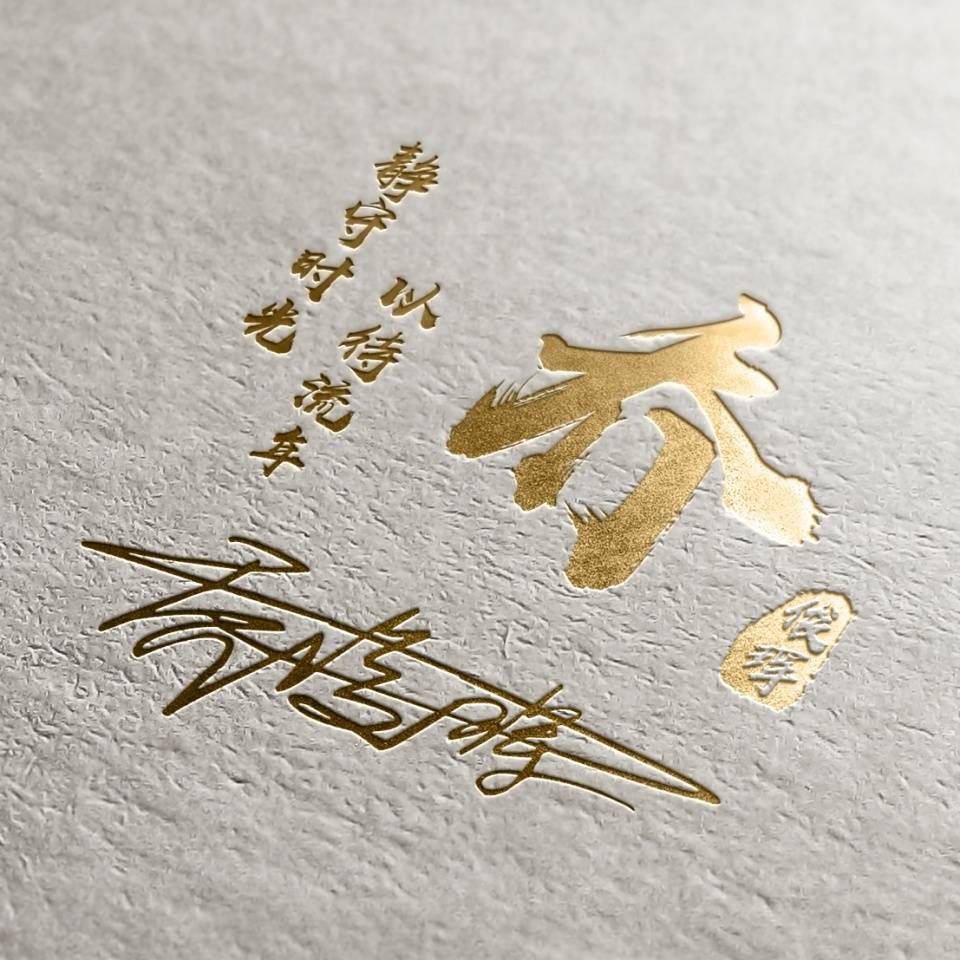 静守时光
以待流年
乔
俊